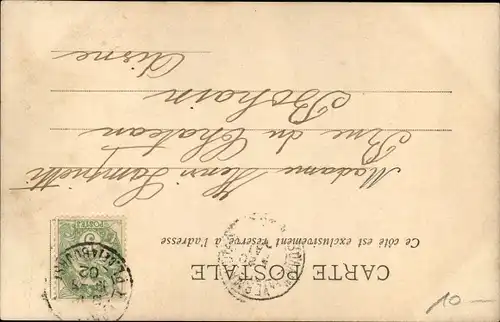 CARTE POSTALE
Ce côté est exclusivement réservé à l'adresse
Madame Henri
Rue du Chateau
Bohain
Aisne
02
10-